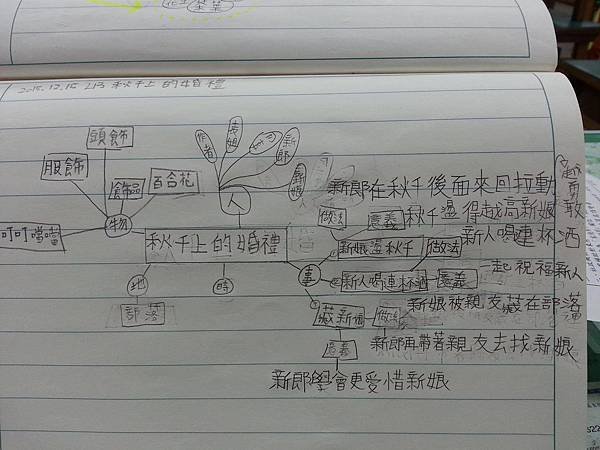 2015.12.15 L13 秋千上的婚禮
頭飾
服飾
飾品
百合花
叮叮噹噹
物
作者
表姐
新郎
新娘
人
秋千上的婚禮
地
部落
時
事
新娘盪秋千
做法
新郎在秋千後面來回拉動
意義
秋千盪得越高新娘
越勇敢
新人喝連杯酒
做法
新人喝連杯酒
意義
一起祝福新人
藏新娘
做法
新娘被親友藏在部落裡
新郎再帶著親友去找新娘
意義
新郎學會更愛惜新娘